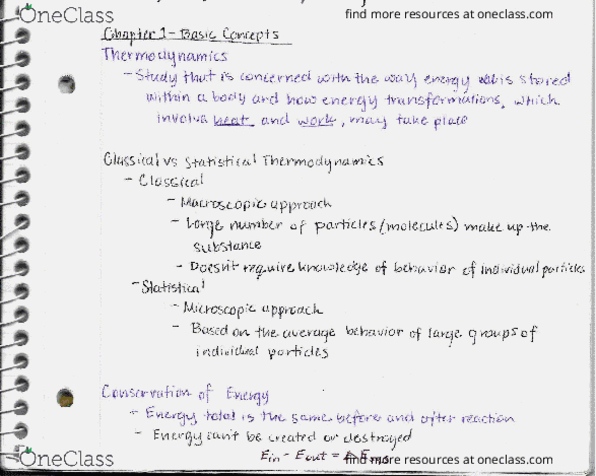 OneClass
find more resources at oneclass.com
Chapter 1 - Basic Concepts
Thermodynamics
- Study that is concerned with the way energy is stored
within a body and how energy transformations, which
involve heat and work, may take place
Classical vs Statistical Thermodynamics
- Classical
- Macroscopic approach
- Large number of particles (molecules) make up the
substance
- Doesn't require knowledge of behavior of individual particles
- Statistical
- Microscopic approach
- Based on the average behavior of large groups of
individual particles
Conservation of Energy
- Energy total is the same before and after reaction
- Energy can't be created or destroyed
Ein - Eout =
OneClass
find more resources at oneclass.com